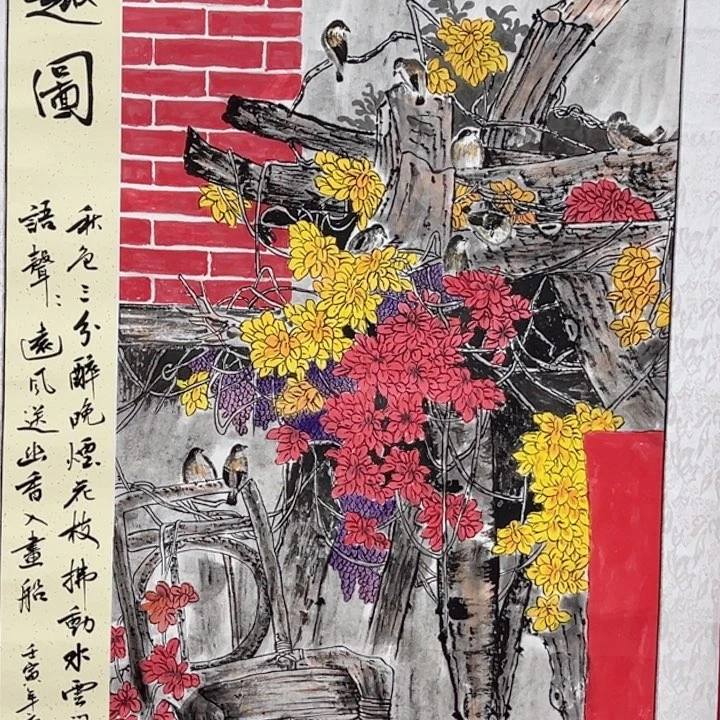 圖
秋色三分醉晚煙花枝拂動水雲
語聲：遠風送幽香入畫船
壬寅年